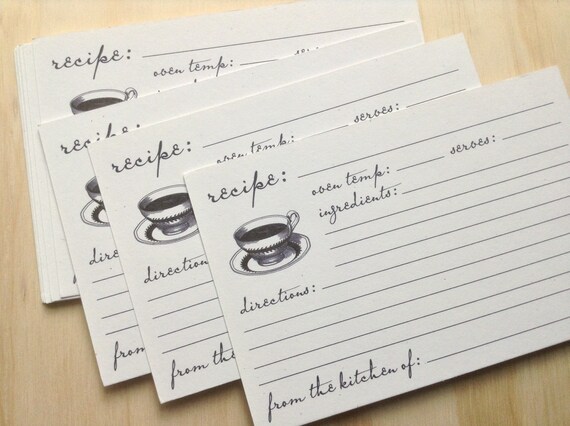 recipe:
oven temp:
recipe:
recipe:
oven temp: serves:
directions:
from the kitchen
directions:
from
recipe:
oven temp: serves:
ingredients:
directions:
from the kitchen of: